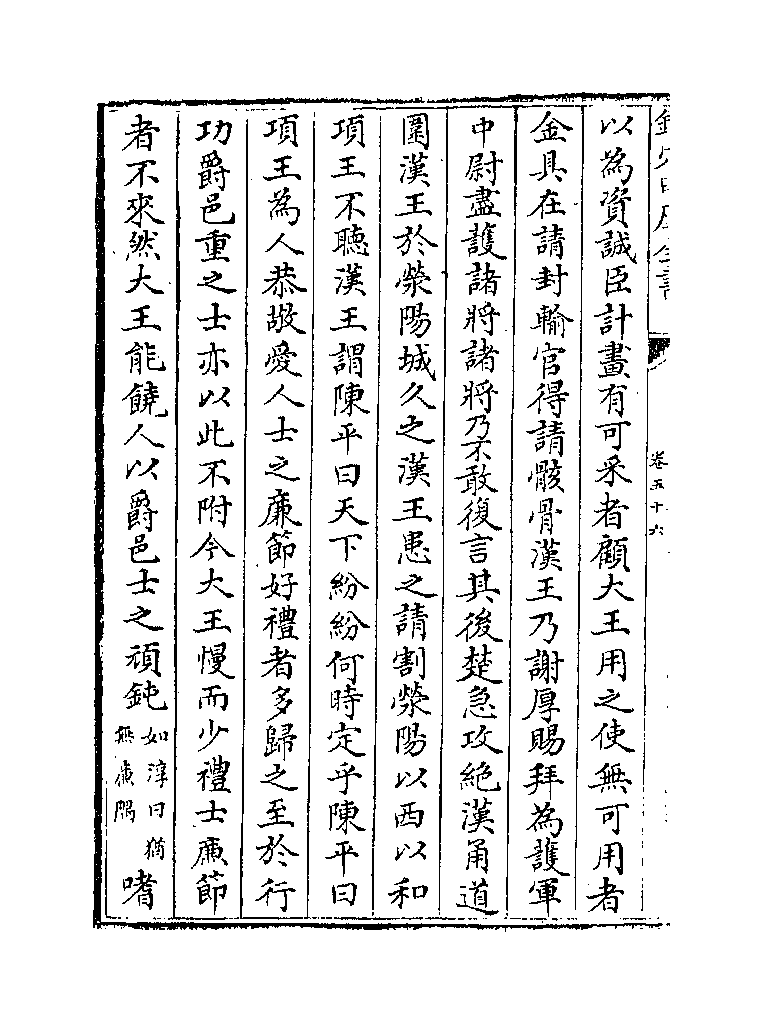 欽定四庫全書
卷五十六
以為資誠臣計畫有可采者顧大王用之使無可用者
金具在請封輸官得請骸骨漢王乃謝厚賜拜為護軍
中尉盡護諸將諸將乃不敢復言其後楚急攻絶漢甬道
圍漢王於滎陽城久之漢王患之請割滎陽以西以和
項王不聽漢王謂陳平曰天下紛紛何時定乎陳平曰
項王為人恭敬愛人士之廉節好禮者多歸之至於行
功爵邑重之士亦以此不附今大王慢而少禮士廉節
者不來然大王能饒人以爵邑士之頑鈍如淳曰猶無廉隅嗜